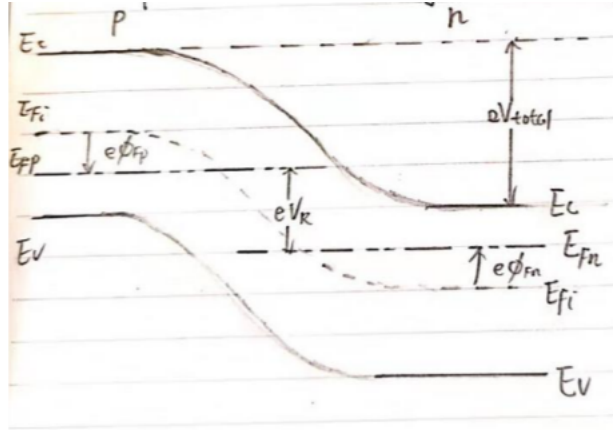 p n
Ec
EFi
EFp
eϕFp
eVR
eVtotal
Ec
EFn
eϕFn
EFi
Ev
Ev